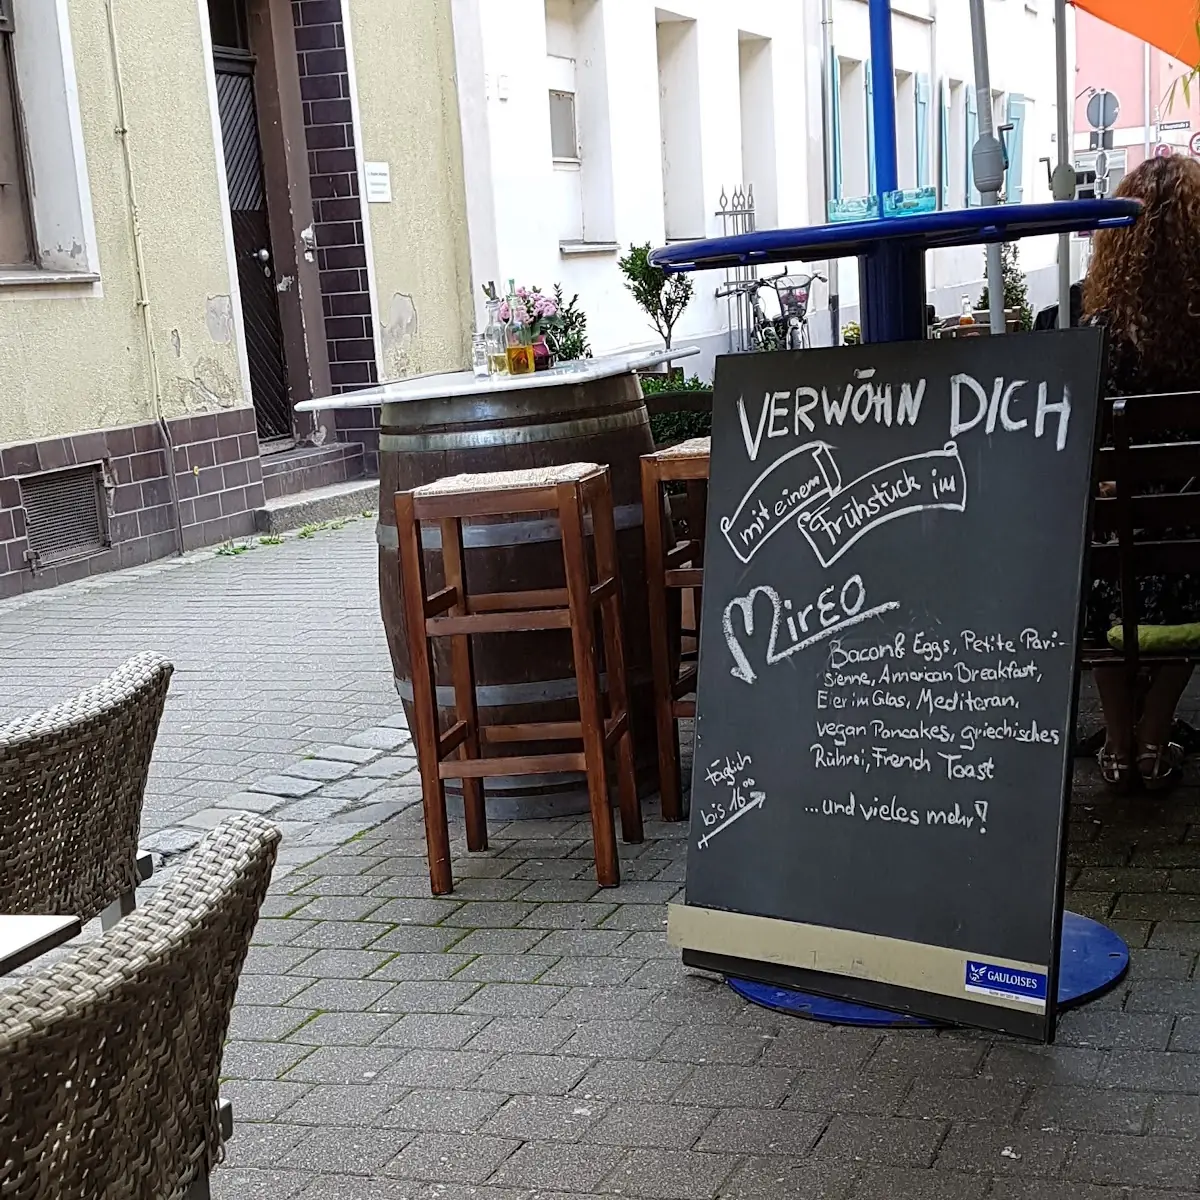 VERWÖHN DICH
mit einem
Frühstück im
Mireo
Bacon & Eggs, Petite Pari-
sienne, American Breakfast,
Eier im Glas, Mediteran,
vegan Pancakes, griechisches
Rührei, French Toast
...und vieles mehr!
täglich
bis 16⁰⁰
GAULOISES